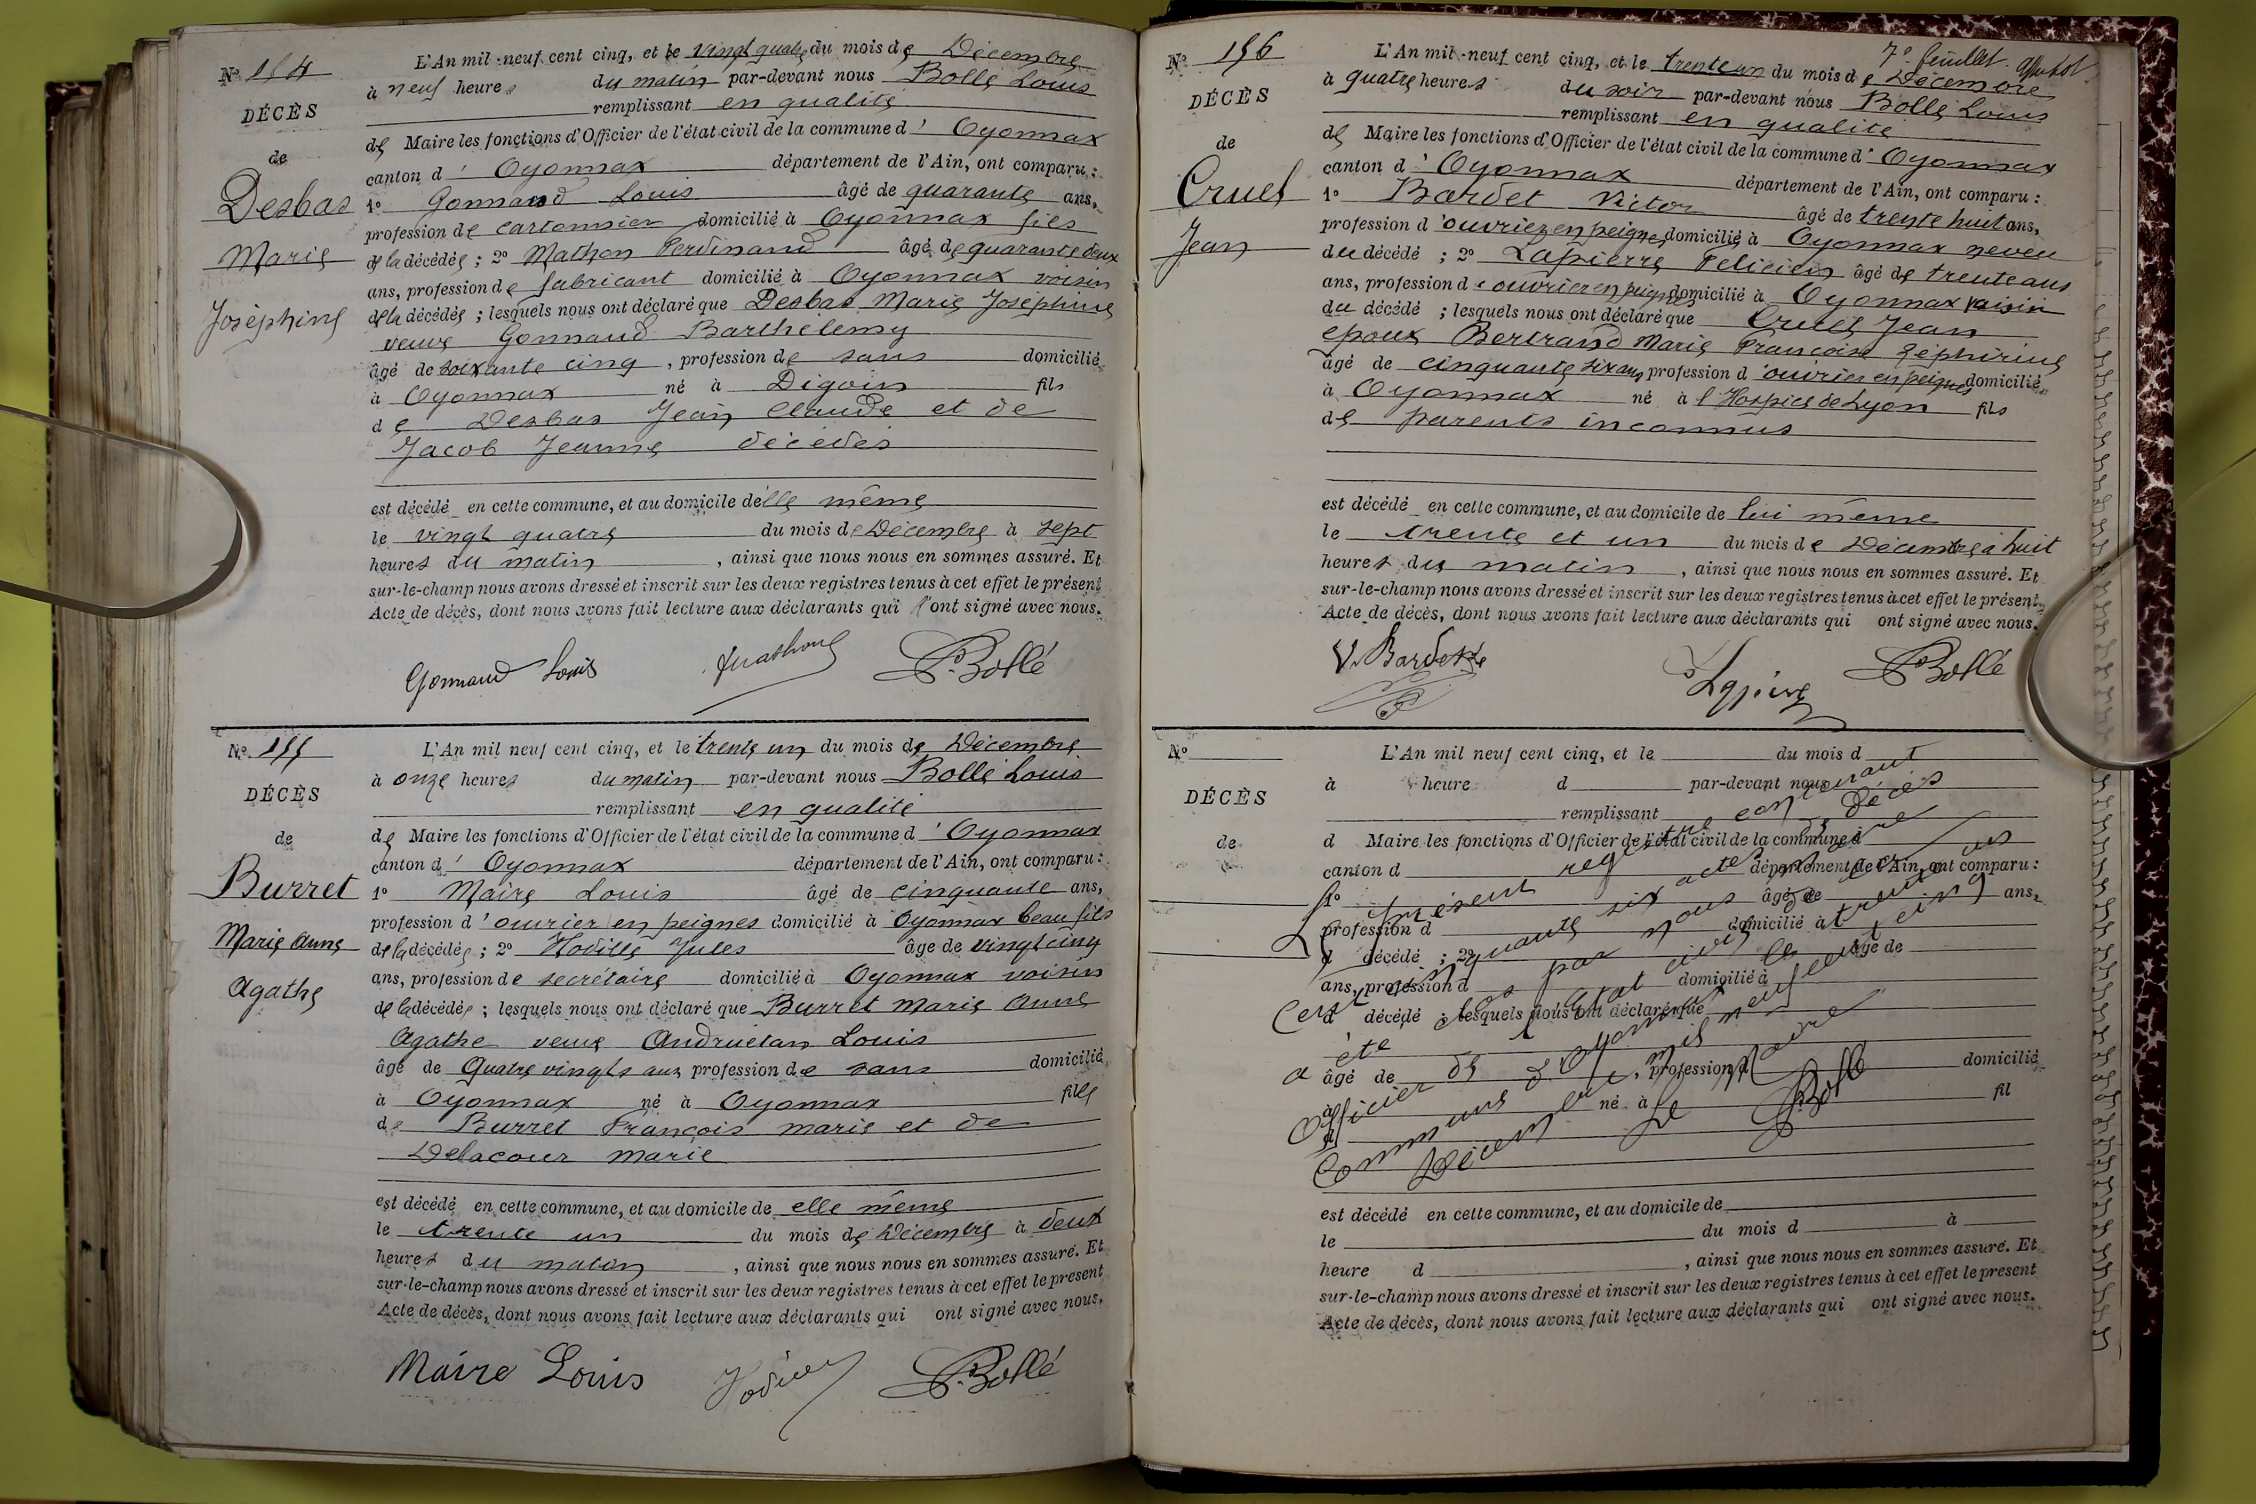 Nº 154
DÉCÈS
de
Desbas
Marie
Joséphine
L'An mil neuf cent cinq, et le vingt quatre du mois de Décembre
à neuf heures du matin par-devant nous Bollé Louis
remplissant en qualité
de Maire les fonctions d'Officier de l'état civil de la commune d'Oyonnax
canton d'Oyonnax département de l'Ain, ont comparu :
1º Gonnand Louis âgé de quarante ans,
profession de cartonnier domicilié à Oyonnax fils
de la décédée ; 2º Mathon Ferdinand âgé de quarante deux
ans, profession de fabricant domicilié à Oyonnax voisin
de la décédée ; lesquels nous ont déclaré que Desbas Marie Joséphine
veuve Gonnand Barthélemy
âgé de soixante cinq, profession de sans domicilié
à Oyonnax né à Digoin fils
de Desbas Jean Claude et de
Jacob Jeanne décédés
est décédé en cette commune, et au domicile d'elle même
le vingt quatre du mois de Décembre à sept
heures du matin, ainsi que nous nous en sommes assuré. Et
sur-le-champ nous avons dressé et inscrit sur les deux registres tenus à cet effet le présent
Acte de décès, dont nous avons fait lecture aux déclarants qui ont signé avec nous.
Gonnand Louis Bollé
Nº 155
DÉCÈS
de
Burret
Marie Anne
Agathe
L'An mil neuf cent cinq, et le trente un du mois de Décembre
à onze heures du matin par-devant nous Bollé Louis
remplissant en qualité
de Maire les fonctions d'Officier de l'état civil de la commune d'Oyonnax
canton d'Oyonnax département de l'Ain, ont comparu :
1º Maire Louis âgé de cinquante ans,
profession d'ouvrier en peignes domicilié à Oyonnax beau fils
de la décédée ; 2º Hodille Jules âgé de vingt cinq
ans, profession de secrétaire domicilié à Oyonnax voisin
de la décédée ; lesquels nous ont déclaré que Burret Marie Anne
Agathe veuve Andruétan Louis
âgé de Quatre vingts ans profession de sans domicilié
à Oyonnax né à Oyonnax fille
de Burret François marie et de
Delacour Marie
est décédé en cette commune, et au domicile de elle même
le trente un du mois de Décembre à deux
heures du matin, ainsi que nous nous en sommes assuré. Et
sur-le-champ nous avons dressé et inscrit sur les deux registres tenus à cet effet le présent
Acte de décès, dont nous avons fait lecture aux déclarants qui ont signé avec nous.
Maire Louis Bollé
7º feuillet.
Nº 156
DÉCÈS
de
Cruel
Jean
L'An mil neuf cent cinq, et le trente un du mois de Décembre
à quatre heures du soir par-devant nous Bollé Louis
remplissant en qualité
de Maire les fonctions d'Officier de l'état civil de la commune d'Oyonnax
canton d'Oyonnax département de l'Ain, ont comparu :
1º Bardet Victor âgé de trente huit ans,
profession d'ouvrier en peignes domicilié à Oyonnax neveu
du décédé ; 2º Lapierre Félicien âgé de trente ans
ans, profession d'ouvrier en peignes domicilié à Oyonnax voisin
du décédé ; lesquels nous ont déclaré que Cruel Jean
époux Bertrand Marie Françoise Zéphirine
âgé de cinquante six ans profession d'ouvrier en peignes domicilié
à Oyonnax né à l'Hospice de Lyon fils
de parents inconnus
est décédé en cette commune, et au domicile de lui même
le trente et un du mois de Décembre à huit
heures du matin, ainsi que nous nous en sommes assuré. Et
sur-le-champ nous avons dressé et inscrit sur les deux registres tenus à cet effet le présent
Acte de décès, dont nous avons fait lecture aux déclarants qui ont signé avec nous.
V. Bardet Lapierre Bollé
Nº
DÉCÈS
de
L'An mil neuf cent cinq, et le du mois d
à heure d par-devant nous
remplissant
d Maire les fonctions d'Officier de l'état civil de la commune d
canton d département de l'Ain, ont comparu :
1º âgé de ans,
profession d domicilié à
d décédé ; 2º âgé de
ans, profession d domicilié à
d décédé ; lesquels nous ont déclaré que
âgé de , profession d domicilié
à né à fil
d
est décédé en cette commune, et au domicile de
le du mois d à
heure d , ainsi que nous nous en sommes assuré. Et
sur-le-champ nous avons dressé et inscrit sur les deux registres tenus à cet effet le présent
Acte de décès, dont nous avons fait lecture aux déclarants qui ont signé avec nous.
Le présent registre contenant
Cent cinquante six actes de décès
a été clos par nous Maire
Officier de l'état civil de la
Commune d'Oyonnax le trente un
Décembre mil neuf cent cinq
Le Maire
Bollé